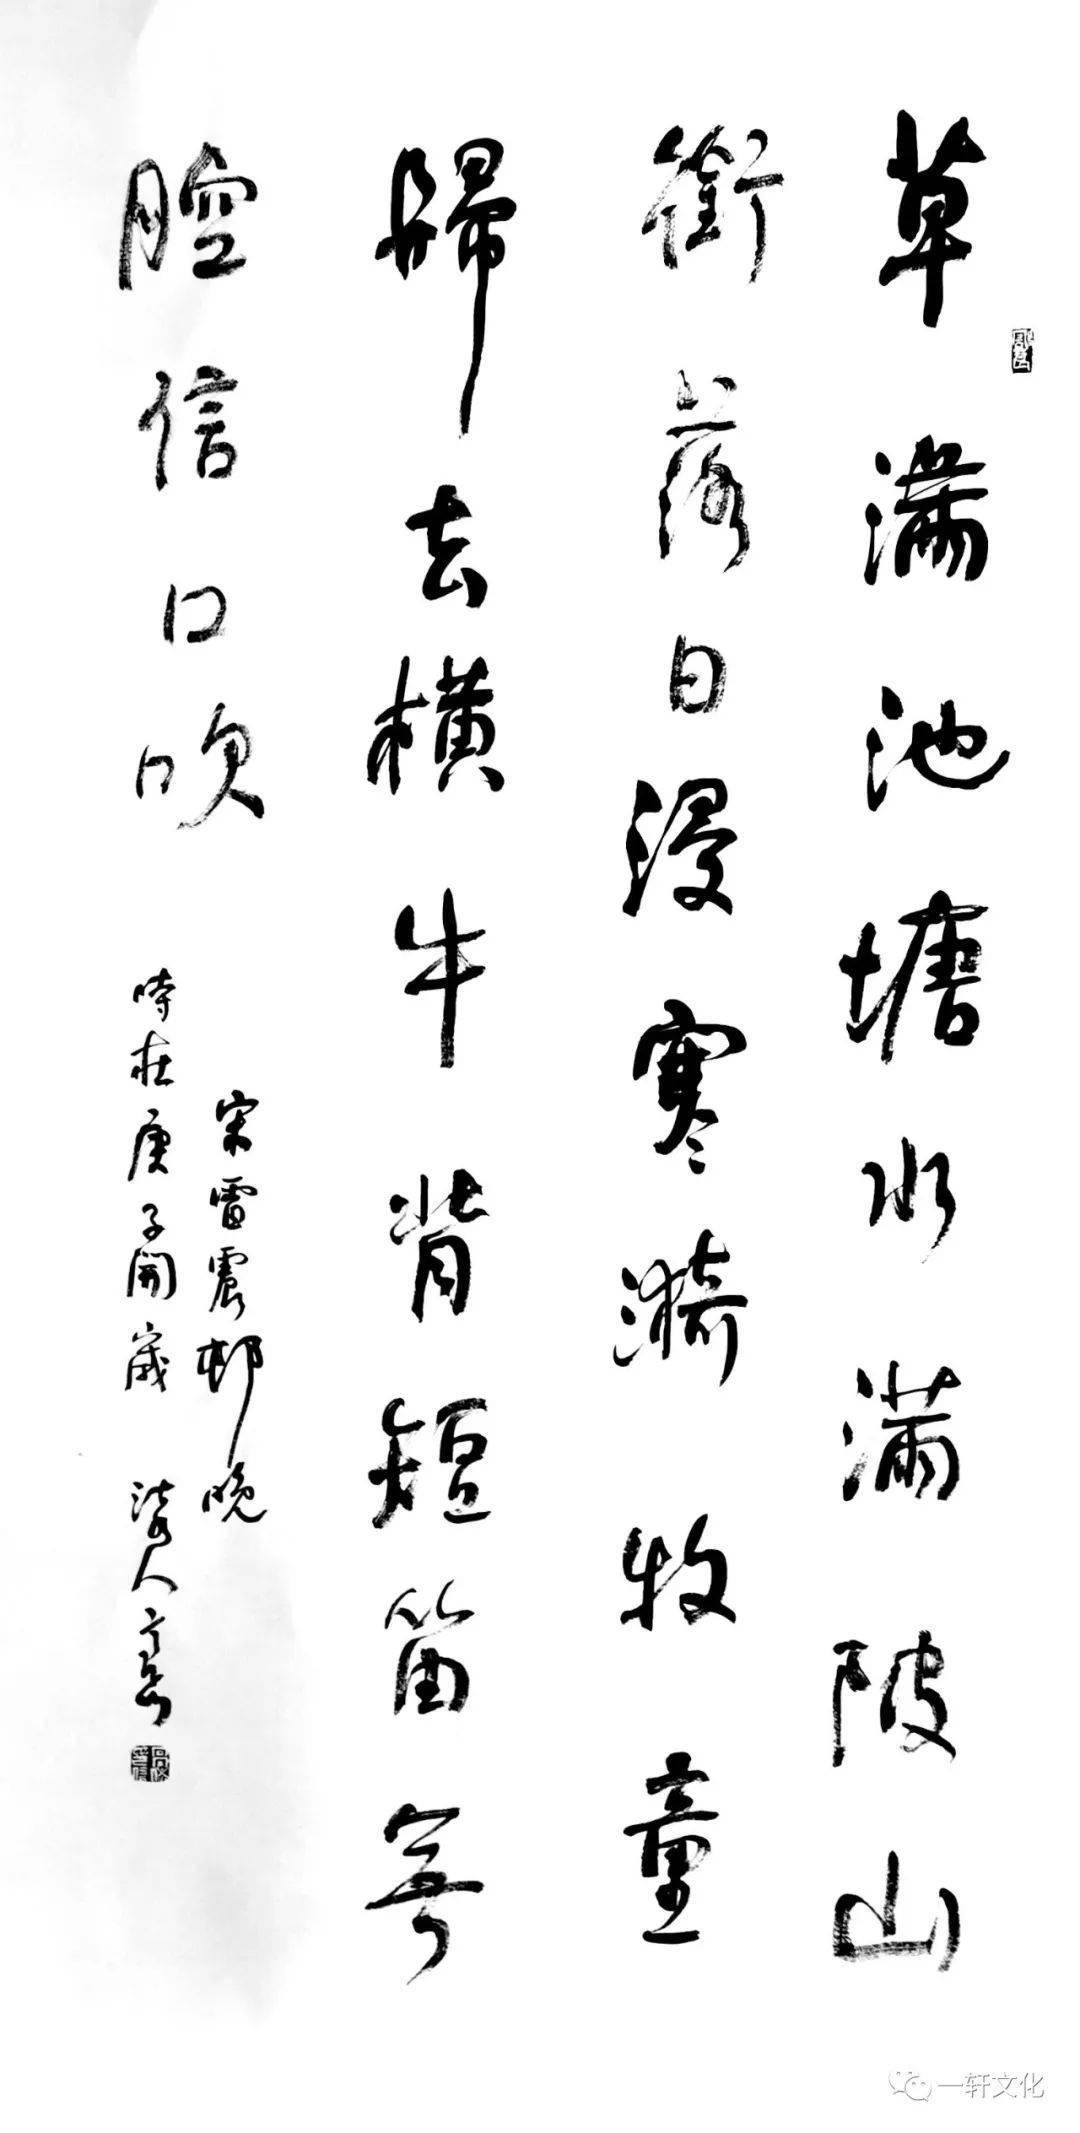 草滿池塘水滿陂山
銜落日浸寒漪牧童
歸去横牛背短笛無
腔信口吹
宋雷震邨晚
時在庚子開歲
一轩文化